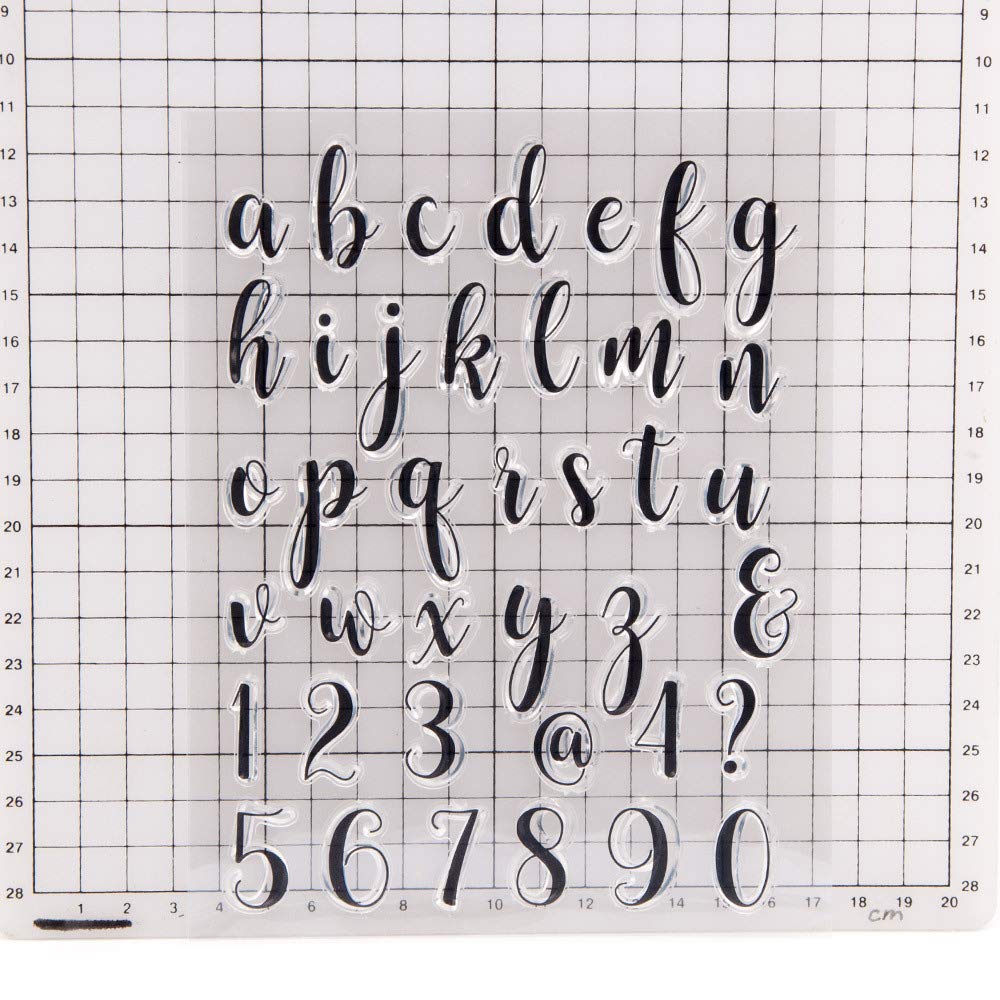 9 9
10 10
11 11
12 12
a b c d e f g
13 13
14 14
15 15
h i j k l m n
16 16
17 17
18 18
o p q r s t u
19 19
20 20
21 21
v w x y z &
22 22
23 23
24 24
1 2 3 @ 4 ?
25 25
26 26
5 6 7 8 9 0
27 27
28 28
1 2 3 4 6 8 10 12 14 16 17 18 19 20
cm